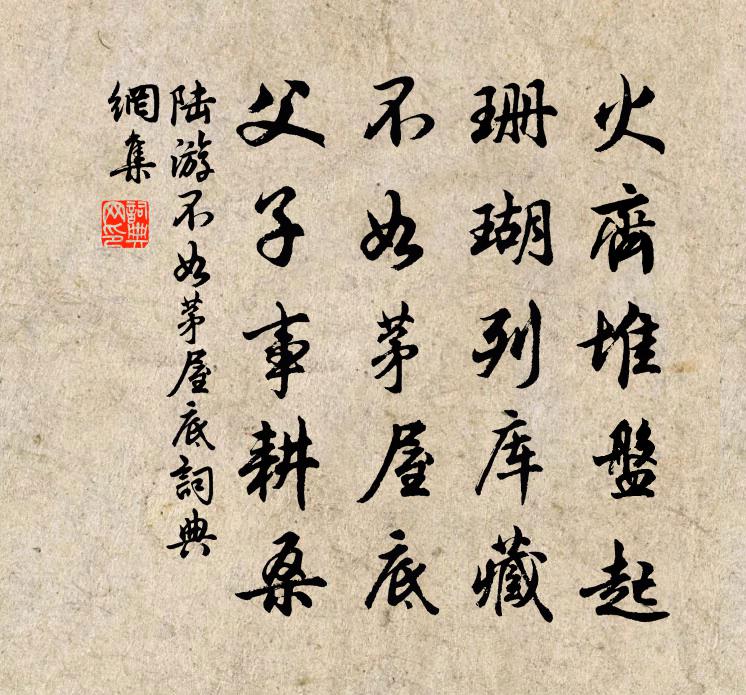 火齊堆盤起
珊瑚列库藏
不如茅屋底
父子事耕桑
陆游不如茅屋底詞典
網集
詞典
网印